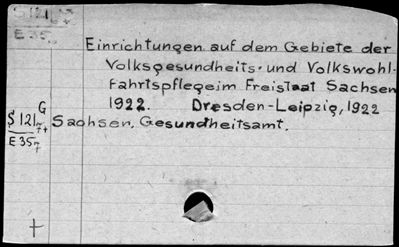 E35
Einrichtungen auf dem Gebiete der
Volksgesundheits- und Volkswohl-
fahrtspflege im Freistaat Sachsen
1922. Dresden-Leipzig, 1922
G
S 121 Sachsen, Gesundheitsamt.
E35